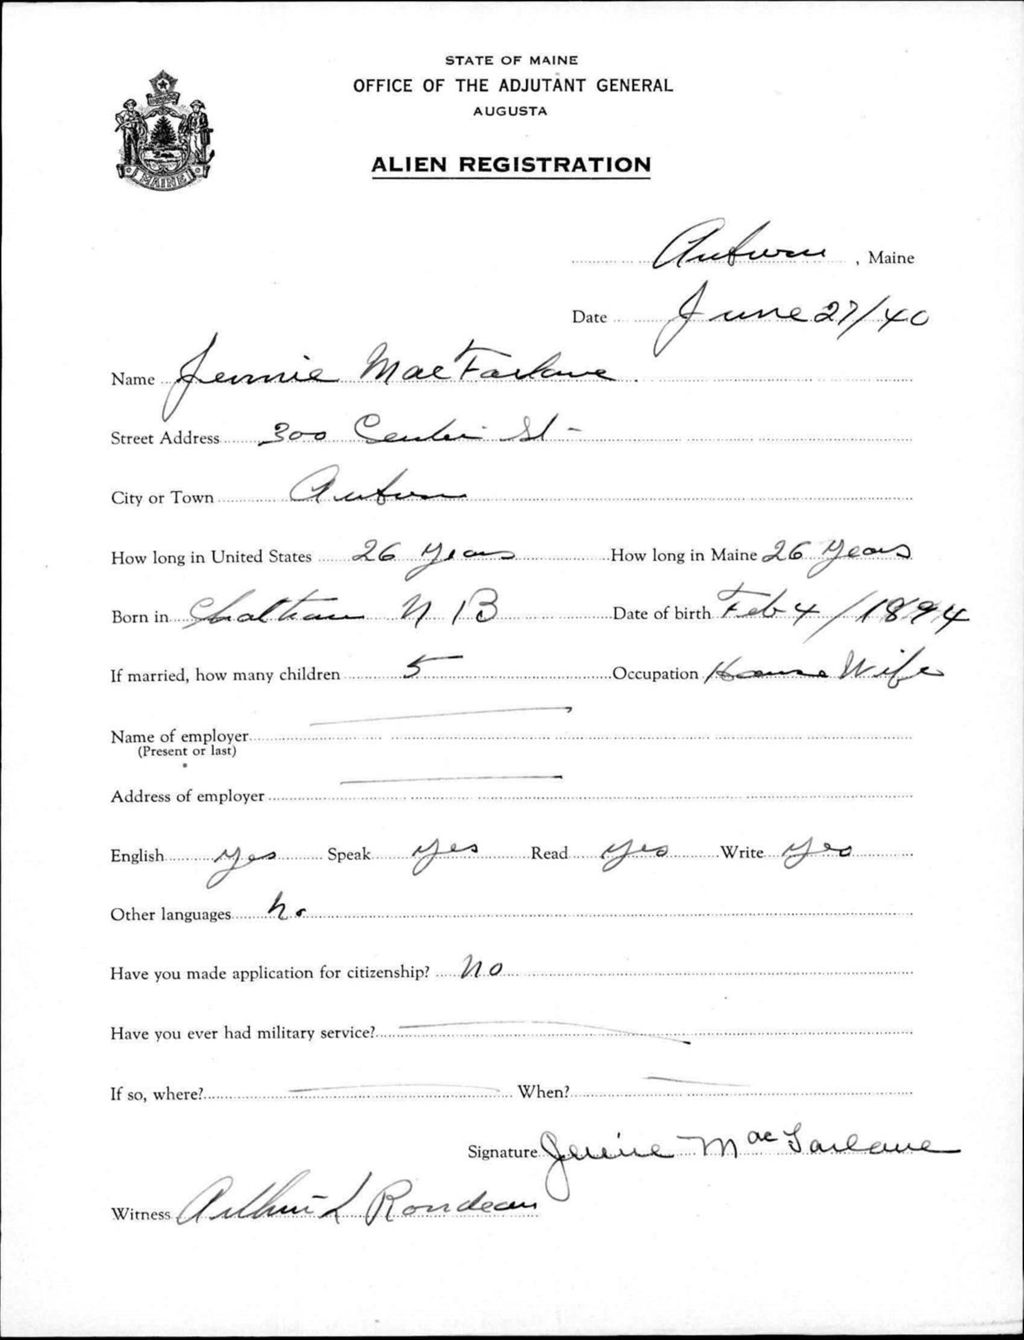 STATE OF MAINE
OFFICE OF THE ADJUTANT GENERAL
AUGUSTA
ALIEN REGISTRATION
MAINE
Auburn, Maine
Date June 27/40
Name Jennie MacFarlane
Street Address 300 Center St -
City or Town Auburn
How long in United States 26 years How long in Maine 26 years
Born in Chatham N B Date of birth Feb 4/1894
If married, how many children 5 Occupation House Wife
Name of employer
(Present or last)
Address of employer
English yes Speak yes Read yes Write yes
Other languages No
Have you made application for citizenship? No
Have you ever had military service?
If so, where? When?
Signature Jennie MacFarlane
Witness Arthur L Rondeau